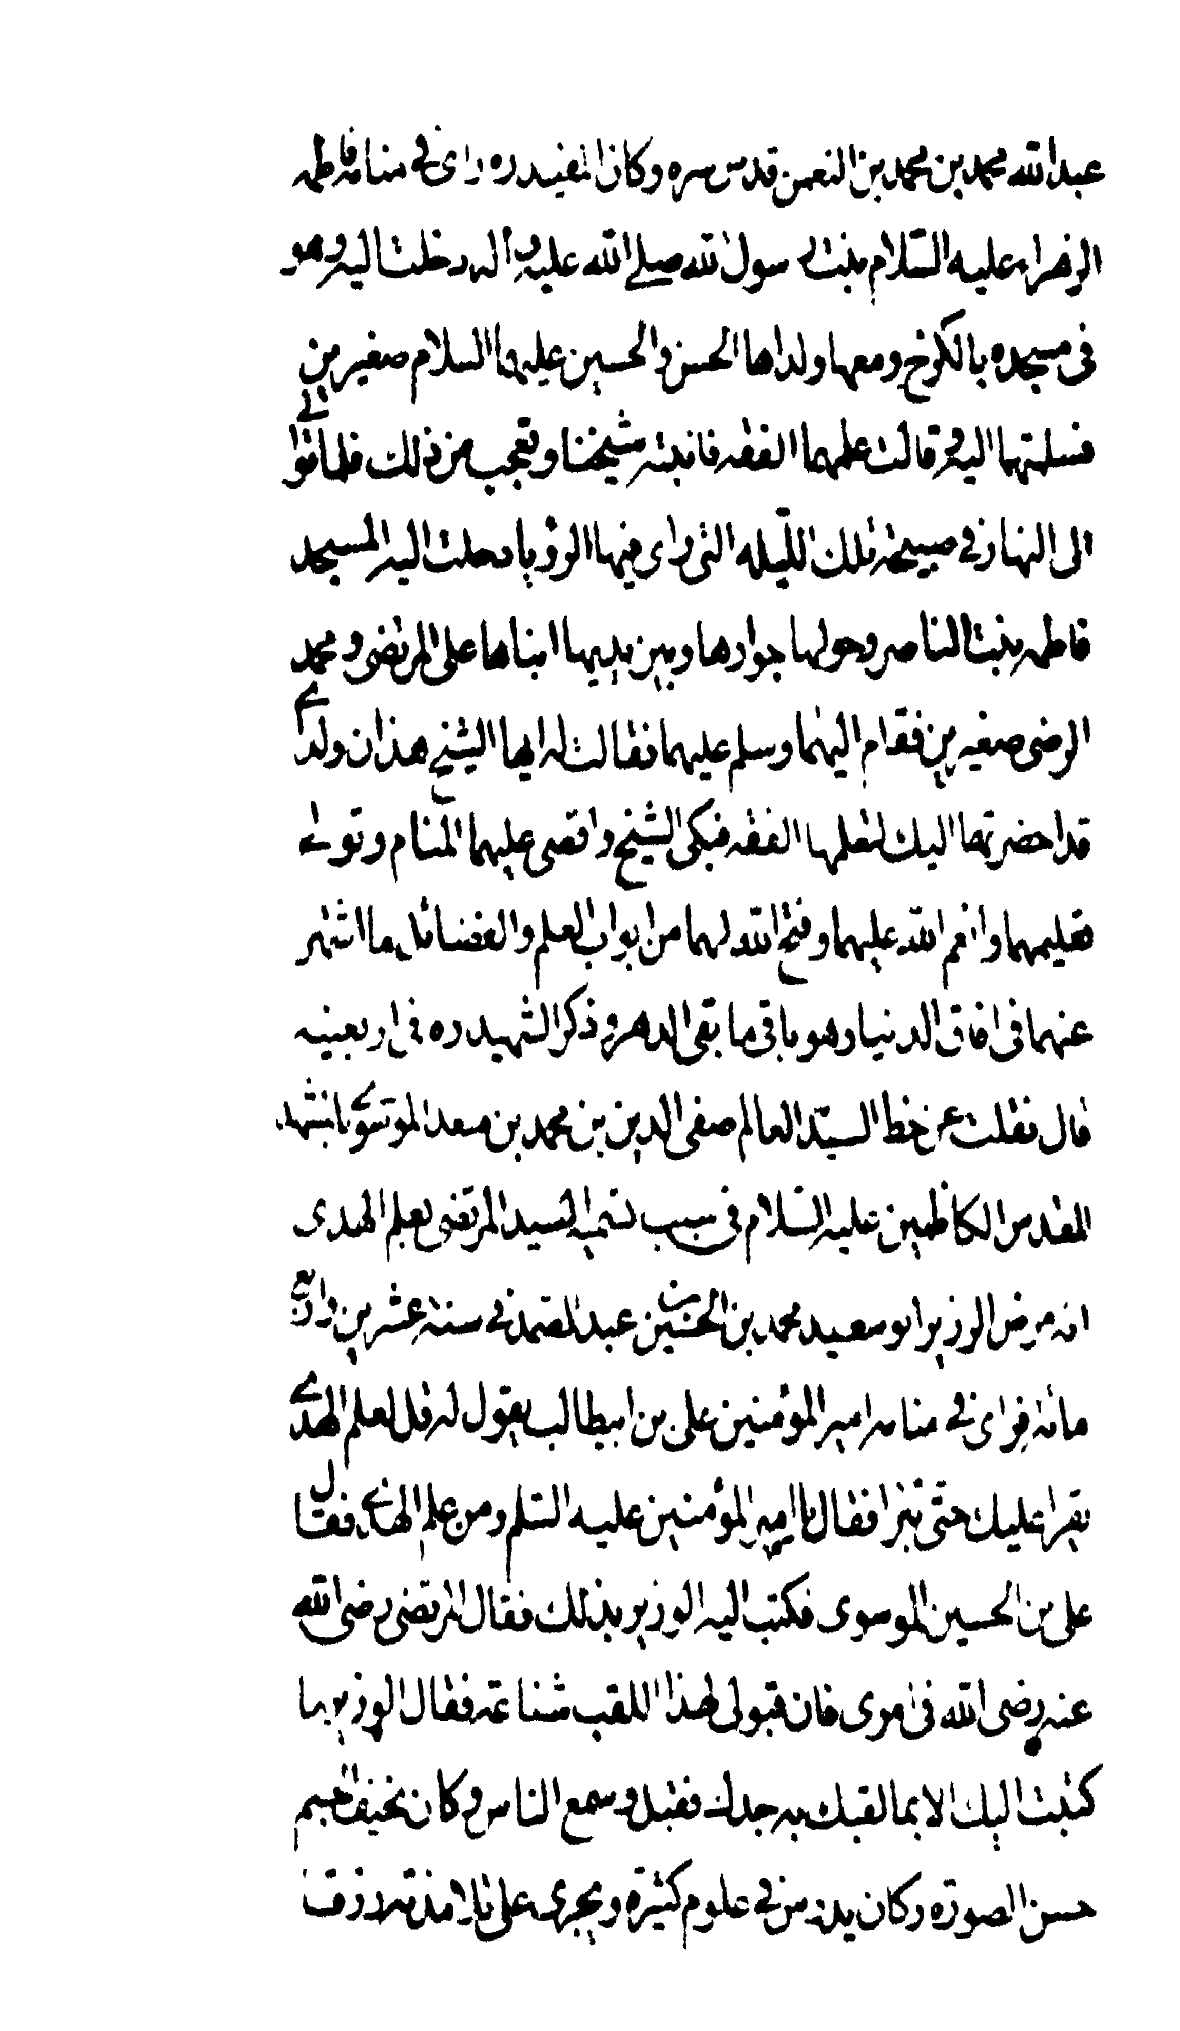 عبدالله محمد بن محمد بن النعمن قدس سره وكان المفيد ره رأى في منامه فاطمه
الزهراء عليه السلام بنت رسول الله صلے الله عليه وآله دخلت اليه وهو
في مسجده بالكرخ ومعها ولداها الحسن والحسين عليهما السلام صغيرين
فسلمتهما اليه وقالت علمهما الفقه فانتبه شيخنا وتعجب من ذلك فلما تعالے
الى النهار في صبيحة تلك الليله التي رأى فيها الرؤيا دخلت اليه المسجد
فاطمه بنت الناصر وحولها جوارها وبين يديها ابناها على المرتضى ومحمد
الرضى صغيرين فقام اليهما وسلم عليهما فقالت له ايها الشيخ هذان ولداے
قد احضرتهما اليك لتعلمها الفقه فبكى الشيخ واقصى عليهما المنام وتولے
تعليمهما وانعم الله عليهما وفتح الله لهما من ابواب العلم والفضائل ما اشتهر
عنهما في افاق الدنيا وهو باقي ما بقى الدهر وذكر الشهيد ره في اربعينيه
قال نقلت عن خط السيد العالم صفى الدين بن محمد بن معد الموسوے بالمشهد
المقدس الكاظمين عليه السلام في سبب تسميه السيد المرتضى بعلم الهدى
انه مرض الوزير ابو سعيد محمد بن الحسين بن عبد الصمد في سنة عشرين واربع
مائة فرأى في منامه امير المؤمنين على بن ابيطالب يقول له قل لعلم الهدے
يقرا عليك حتى تبرا فقال يا امير المؤمنين عليه السلم ومن علم الهدے فقال
على بن الحسين الموسوى فكتب اليه الوزير بذلك فقال المرتضى رضى الله
عنه رضى الله في امرى فان قبولى لهذا اللقب شناعة فقال الوزير ما
كتبت اليك الا بما لقبك به جدك فقبل وسمع الناس وكان نحيف الجسم
حسن الصورة وكان يدرس في علوم كثيرة ويجرى على تلامذته رزق